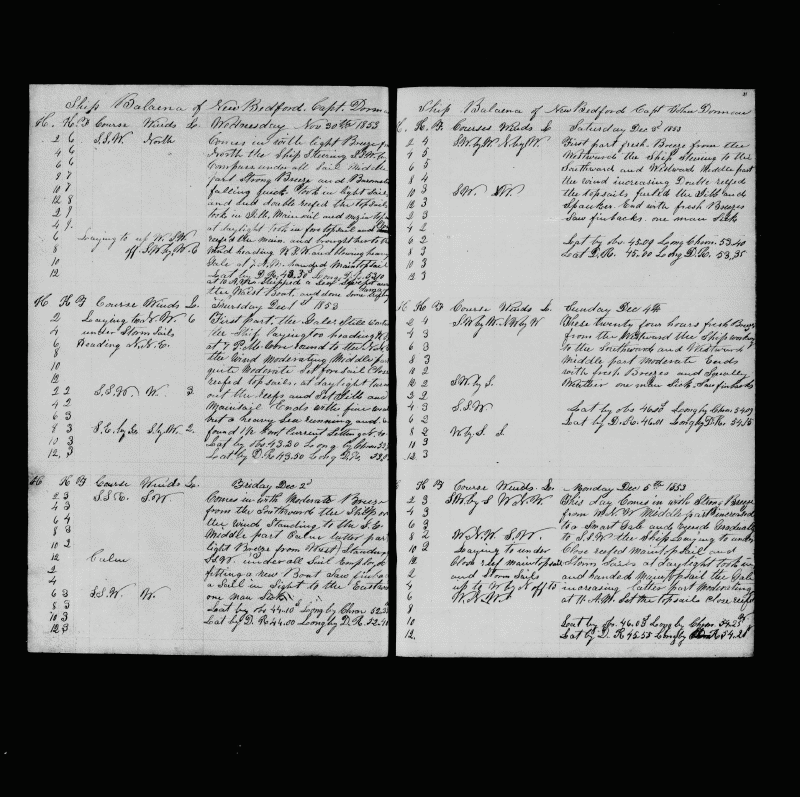 Ship Balaena of New Bedford. Capt. Dorman
H. K. F Course Winds L. Wednesday Nov 30th 1853
2 6 S.S.W. North Comes in with light Breeze from
4 6 North the Ship Steering S.S.W. by
6 6 Compass under all Sail Middle
8 part Strong Breeze and Barometer
falling quick. Took in light Sails
12 8 and had double reefed the topsails
2 took in Jib, Main sail and
4 9. at daylight took in fore topsail and
6 Laying to up W.S.W. reefed the main. and brought her to the
8 off S.W. by W. 6 Wind heading W.S.W. and blowing heavy
10 Gale at A.M. handed Maintopsail
12 Lat by D.R. 43.30 Long.
the Waist Boat, and done some
H K F Course Winds L. Thursday Dec 1st 1853
2 Laying to N.W. 6 First part, the Gale Still
4 under Storm Sails the Ship laying to heading
6 Heading N.N.E. at 7 P.M.
8 the Wind Moderating Middle part
10 quite Moderate Set fore sail Close
12 reefed topsails, at daylight turned
2 2 S.S.W. W. 3 out the reefs and Set Jibb and
4 2 Mainsail Ends with fine weather
6 3 but a heavy Sea running and
8 3 S.E. by S. S. by W. 2. found Current Setting
10 3 Lat by Obs. 43.20 Long by Chron
12, 3 Lat by D.R 43.50 Long D.R.
H K F Course Winds L. Friday Dec 2d
2 3 S.S.E. S.W Comes in with Moderate Breeze
4 3 from the Southward the Ship on
6 4 the wind Standing to the S.E
8 3 Middle part Calm latter part
10 2 light Breeze from West Standing
12 Calm S.S.W. under all Sail Employed
2 fitting a new Boat Saw finbacks
4 a Sail in Sight to the Eastward
6 3 S.S.W. W. one man Sick
8 3 Lat by obs 44.10 Long by Chron
10 3 Lat by D.R 44.00 Long by D.R. 52.40
12 3
Ship Balaena of New Bedford Capt John Dorman
H. K. F. Courses Winds L Saturday Dec 3d 1853
2 4 S.W. by W N. by W. First part fresh Breeze from the
4 5 Westward the Ship Steering to the
6 5 Southward and Westward Middle part
8 4 the wind increasing Double reefed
10 3 the topsails furled the Jibb and
12 3 S.W. W. Spanker. End with fresh Breezes
2 3 Saw finbacks. one man Sick
4 3
6 2 Lat by obs. 45.09 Long Chron. 53.40
8 2 Lat D.R. 45.00 Long D.R. 53.35
10 3
12 3
H K F Course Winds L. Sunday Dec 4th
2 4 S.W. by W. N.W by W These twenty four hours fresh Breeze
4 3 from the Westward the Ship working
6 3 to the Southward and Westward
8 3 Middle part Moderate Ends
10 2 with fresh Breezes and Squally
12 2 S.W. by S. Weather one man Sick. Saw finbacks
2 2
4 3 S.S.W Lat by obs Long by Chron
6 3 Lat by D.R. 46.01 Long by D.R.
8 2 W. by S. S.
10 3
12. 3
H K F Course Winds. L. Monday Dec 5th 1853
2 3 S.W. by S W.N.W. This day Comes in with Strong Breeze
4 3 from W.N.W Middle part increased
6 3 to a Smart Gale and veered Gradually
8 2 W.N.W. S.W. to S.S.W the Ship Laying to under
10 2 Laying to under Close reefed Maintopsail and
12 Close reef maintopsail Storm Sails at daylight took in
2 and Storm Sails and handed Maintopsail the Gale
4 up W. by N off increasing latter part Moderating
6 W.N.W. at 11 A.M. Set the topsails Close reefed
8
10 Lat by obs. 46.03 Long by Chron. 54.25
12. Lat by D.R 45.55 Long by D.R 54.28